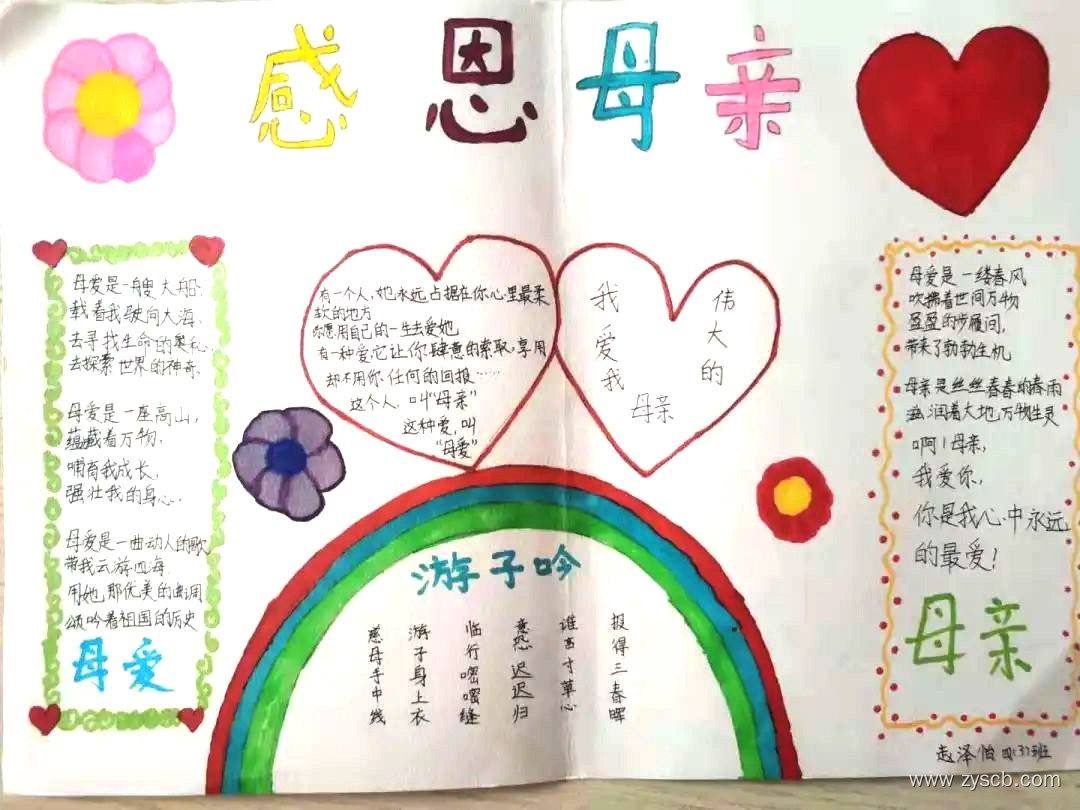 感恩母亲
母爱是一艘大船,
载着我驶向大海,
去寻找生命的奥秘,
去探索世界的神奇,
母爱是一座高山,
蕴藏着万物,
哺育我成长,
强壮我的身心,
母爱是一曲动人的歌
带我云游四海
用她那优美的曲调
颂吟着祖国的历史
母爱
有一个人,她永远占据在你心里最柔
软的地方
你愿用自己的一生去爱她
有一种爱,它让你肆意的索取,享用
却不用你任何的回报……
这个人,叫“母亲”
这种爱,叫
“母爱”
我爱我
伟大的
母亲
游子吟
慈母手中线
游子身上衣
临行密密缝
意恐迟迟归
谁言寸草心
报得三春晖
母爱是一缕春风
吹拂着世间万物
盈盈的步履间,
带来了勃勃生机
母亲是丝丝春春的春雨
润着大地,万物生灵
啊!母亲,
我爱你,
你是我心中永远
的最爱!
母亲
赵泽怡 四(3)班
www.zyscb.com